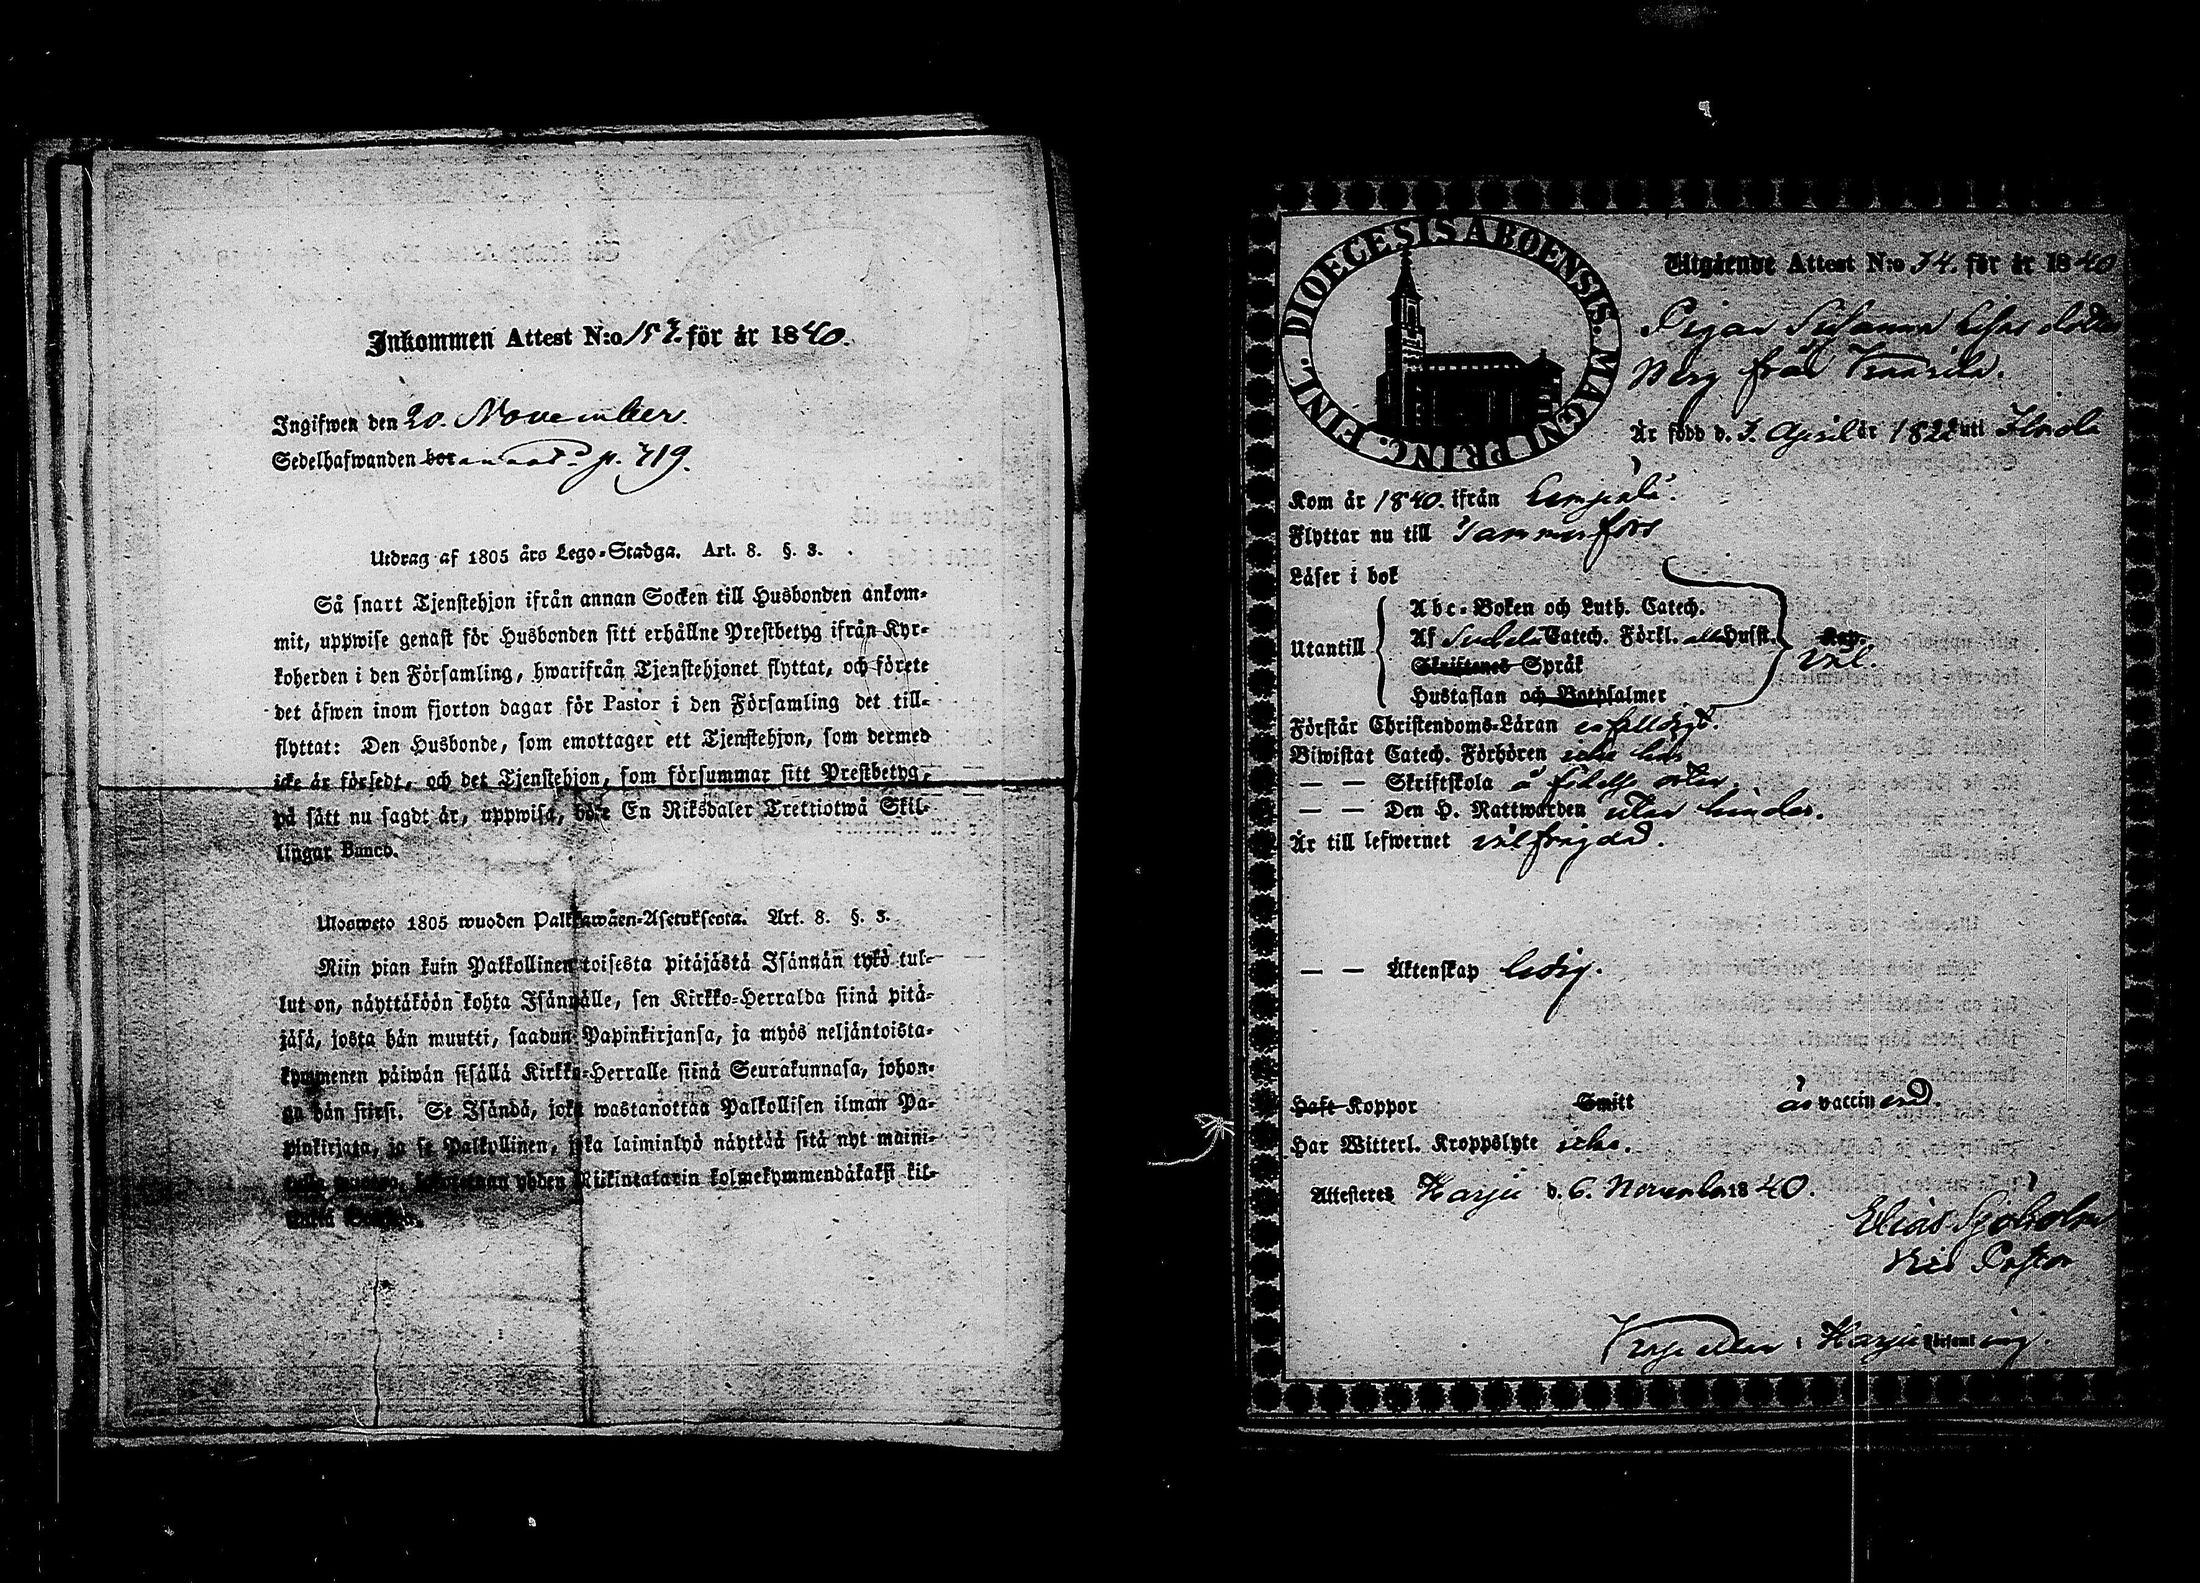 Inkommen Attest N:o 153. för år 1840.
Ingifwen den 20. November.
Sedelhafwanden bor p. 719.
Utdrag af 1805 års Lego-Stadga. Art. 8. §. 3.
Så snart Tjenstehjon ifrån annan Socken till Husbonden ankom-
mit, uppwise genast för Husbonden sitt erhållne Prestbetyg ifrån Kyr-
koherden i den Församling, hwarifrån Tjenstehjonet flyttat, och förete
det äfwen inom fjorton dagar för Pastor i den Församling det till-
flyttat: Den Husbonde, som emottager ett Tjenstehjon, som dermed
icke är försedt, och det Tjenstehjon, som försummar sitt Prestbetyg,
på sätt nu sagdt är, uppwisa, böte En Riksdaler Trettiotwå Skil-
lingar Banco.
Ulosweto 1805 wuoden Palkkawäen-Asetuksesta. Art. 8. §. 3.
Niin pian kuin Palkollinen toisesta pitäjästä Isännän tykö tul-
lut on, näyttäköön kohta Isännälle, sen Kirkko-Herralda siinä pitä-
jäsä, josta hän muutti, saadun Papinkirjansa, ja myös neljäntoista-
kymmenen päiwän sisällä Kirkko-Herralle siinä Seurakunnasa, johon-
ga hän siirsi. Se Isändä, joka wastanottaa Palkollisen ilman Pa-
pinkirjata, ja se Palkollinen, joka laiminlyö näyttää sitä nyt maini-
tulla yhden Riikintalarin kolmekymmendäkaksi kil-
DIOECESIS ABOENSIS. MAGNI PRINC. FINL.
Utgående Attest N:o 34. för år 1840
Pigan Susanna Lisas dotter
Berg från Knaarila.
Är född d. 3. April år 1822 uti
Kom år 1840. ifrån Lempälä.
Flyttar nu till Tammerfors
Läser i bok
Utantill
Abc-Boken och Luth. Catech.
Af Svebeli Catech. Förkl. alla Husst. Kap.
väl.
Skriftenes Språk
Hustaflan och Botpsalmer
Förstår Christendoms-Läran enfaldigt.
Biwistat Catech. Förhören icke här
— — Skriftskola å födelse orten.
— — Den H. Nattwarden utan hinder.
Är till lefwernet välfrägdad.
— — Äktenskap ledig.
Haft Koppor Smitt är vaccinerad.
Har Witterl. Kroppslyte icke.
Attesteres Harju d. 6. November 1840.
Elias Sjöholm
Vice Pastor
i Harju Församl ing.